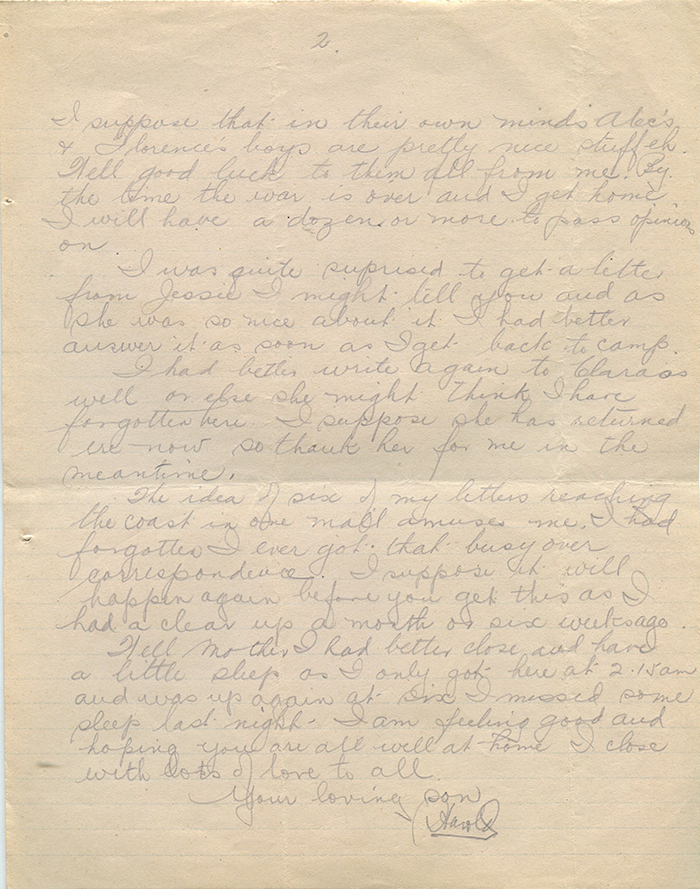 2.
I suppose that in their own minds Alec's
& Florence's boys are pretty nice stuff eh.
Well good luck to them all from me. By
the time the war is over and I get home
I will have a dozen or more to pass opinions
on
I was quite suprised to get a letter
from Jessie I might tell you and as
she was so nice about it I had better
answer it as soon as I get back to camp.
I had better write again to Clara as
well or else she might think I have
forgotten her. I suppose she has returned
ere now so thank her for me in the
meantime.
The idea of six of my letters reaching
the coast in one mail amuses me. I had
forgotten I ever got that busy over
correspondence. I suppose it will
happen again before you get this as I
had a clear up a month or six weeks ago.
Well Mother I had better close and have
a little sleep as I only got here at 2.15 am
and was up again at six I missed some
sleep last night. I am feeling good and
hoping you are all well at home I close
with lots of love to all.
Your loving son
Harold